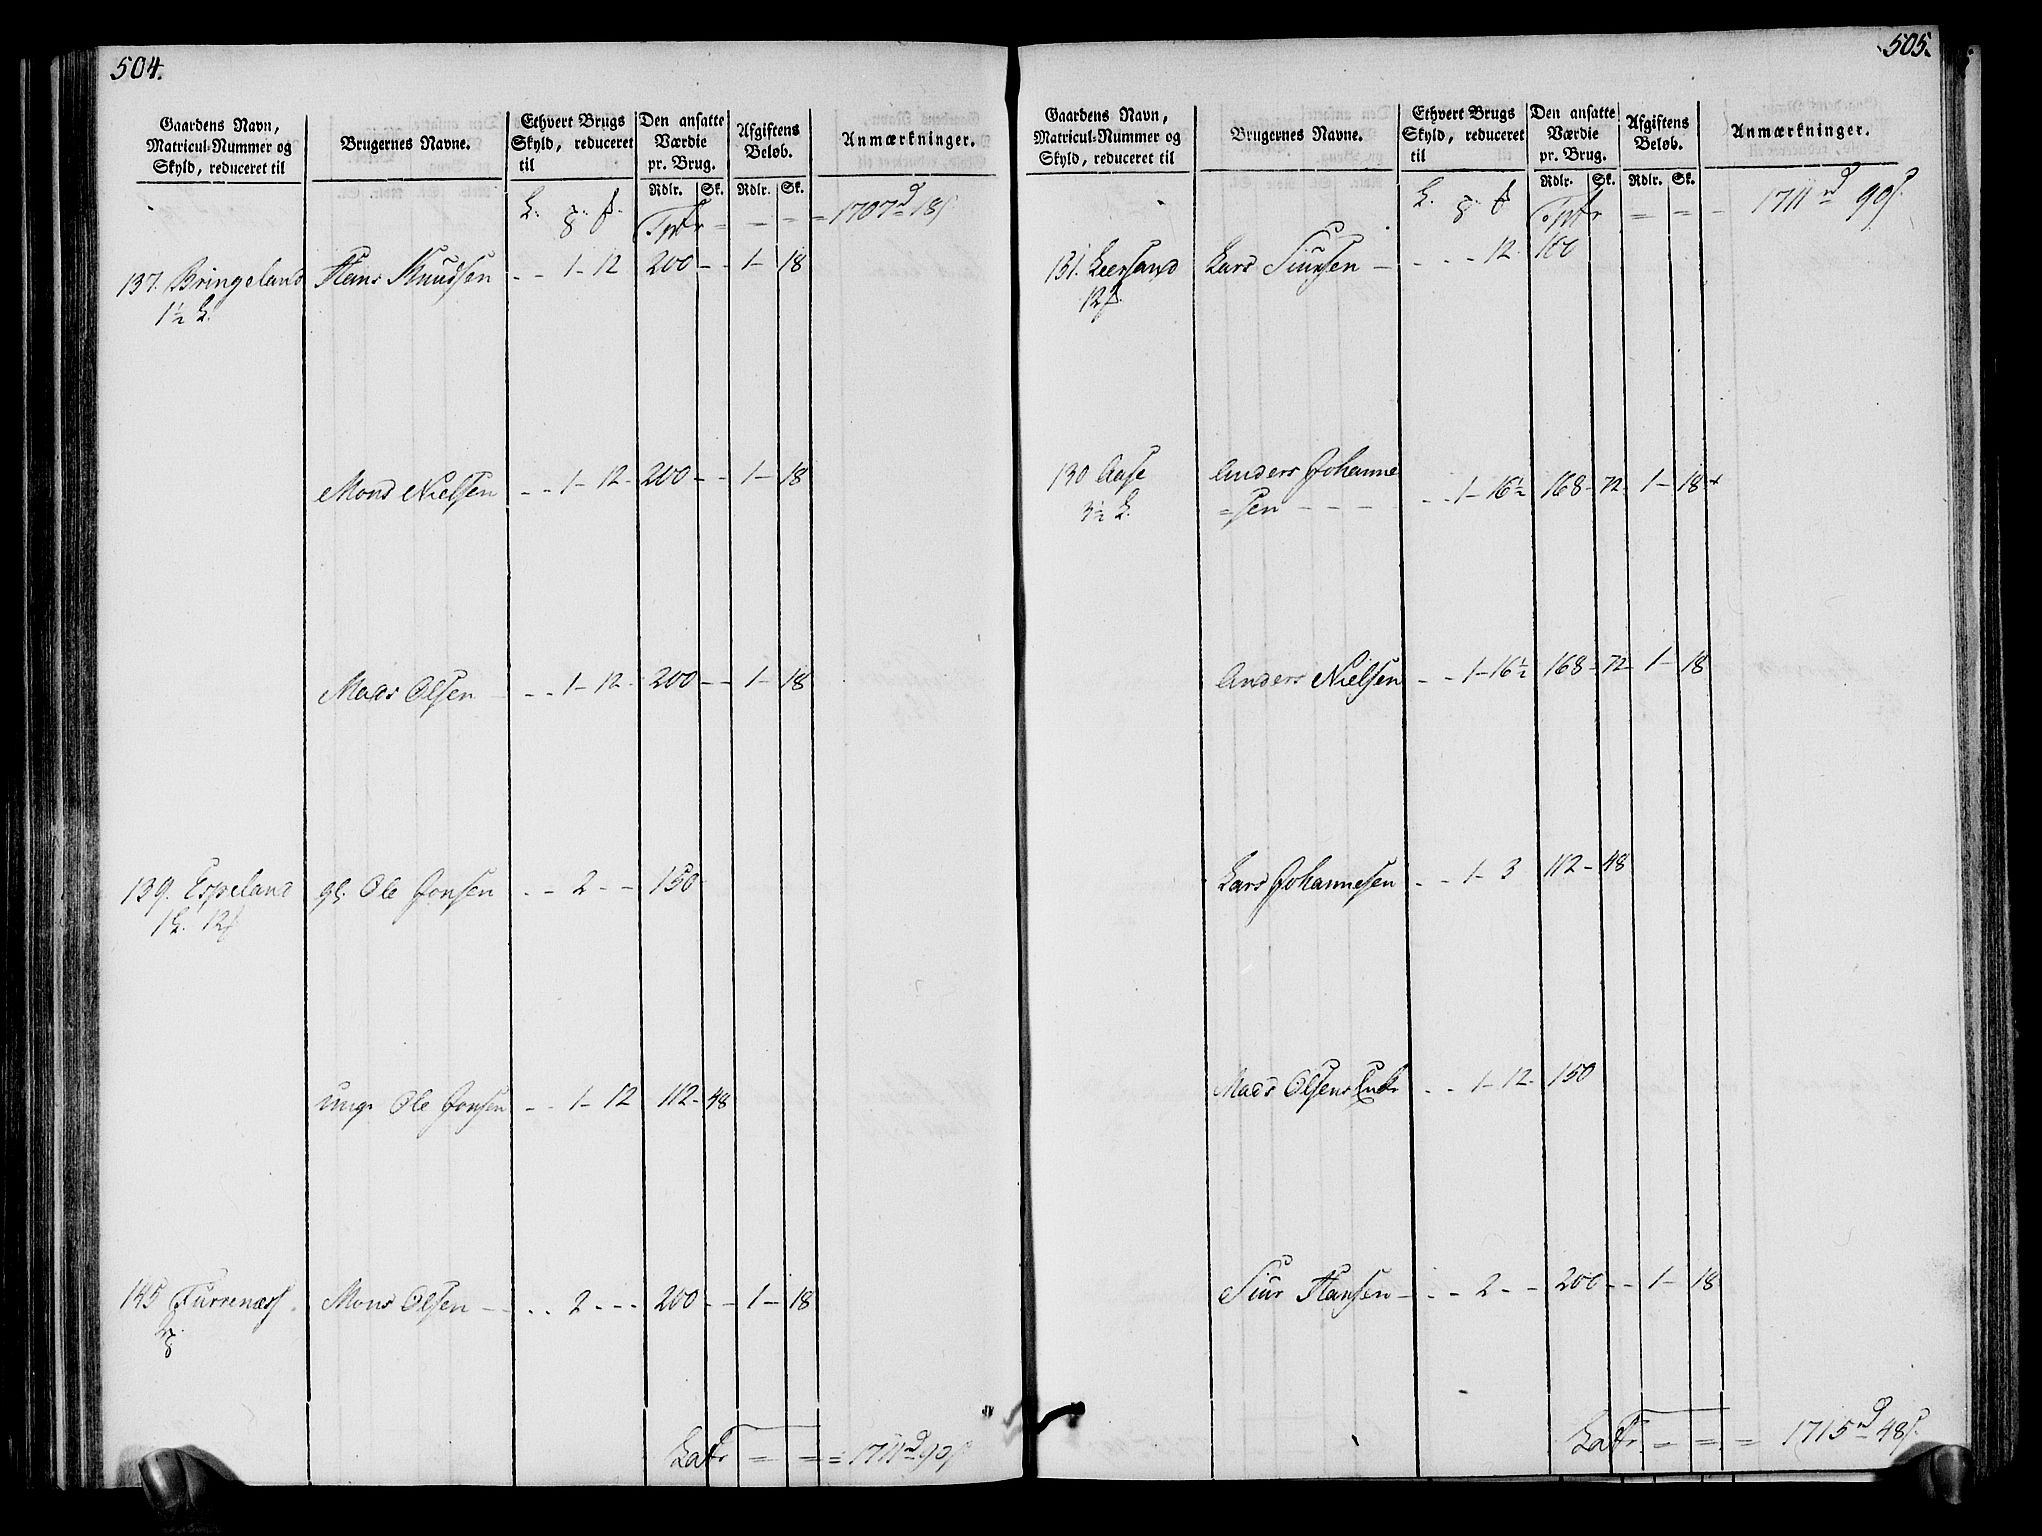 504.
Gaardens Navn, Matricul-Nummer og Skyld, reduceret til
Brugernes Navne.
Ethvert Brugs Skyld, reduceret til
Den ansatte Værdie pr. Brug.
Afgiftens Beløb.
Anmærkninger.
Rdlr. Sk. Rdlr. Sk.
L. 8. f. Tptr - - = 1707 d 18 f
137. Bringeland Hans Knudsen - - 1 - 12 200 - - 1 - 18
1 1/2 L.
Mons Nielsen - - 1 - 12 - 200 - - 1 - 18
Mads Olsen - - 1 - 12 - 200 - - 1 - 18
139. Espeland gl. Ole Jonsen - - 2 - - 150
1 L. 12 f
ung. Ole Jonsen - - 1 - 12 112 - 48
145 Furrenæss. Mons Olsen - - - - 2 - - - 200 - - 1 - 18
2 8
Latr = = = 1711 d 90 f
505.
Gaardens Navn, Matricul-Nummer og Skyld, reduceret til
Brugernes Navne.
Ethvert Brugs Skyld, reduceret til
Den ansatte Værdie pr. Brug.
Afgiftens Beløb.
Anmærkninger.
Rdlr. Sk. Rdlr. Sk.
L. 8. f Tptr = = - 1711 d 90 f.
131. Leersand Lars Siursen - - - - 12 - 100
12 f.
130 Aase Anders Johanne
3 1/2 L. =sen - - - - - 1 - 16 1/2 168 - 72 - 1 - 18
Anders Nielsen - - 1 - 16 1/2 168 - 72 - 1 - 18
Lars Johannesen - - 1 - 3 112 - 48
Mads Olsens Enke - - 1 - 12 - 150
Siur Hansen - - - 2 - - 200 - - 1 - 18
Latr. = = = 1715 d 48 f.